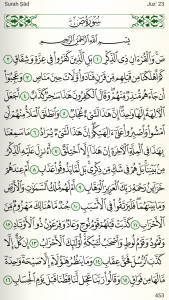 Surah Ṣād Juz' 23
سُورَةُ صٓ
بِسْمِ ٱللَّهِ ٱلرَّحْمَٰنِ ٱلرَّحِيمِ
صٓ وَٱلْقُرْءَانِ ذِى ٱلذِّكْرِ ١ بَلِ ٱلَّذِينَ كَفَرُوا۟ فِى عِزَّةٍ وَشِقَاقٍ ٢
كَمْ أَهْلَكْنَا مِن قَبْلِهِم مِّن قَرْنٍ فَنَادَوا۟ وَّلَاتَ حِينَ مَنَاصٍ ٣ وَعَجِبُوٓا۟
أَن جَآءَهُم مُّنذِرٌ مِّنْهُمْ وَقَالَ ٱلْكَٰفِرُونَ هَٰذَا سَٰحِرٌ كَذَّابٌ ٤ أَجَعَلَ
ٱلْءَالِهَةَ إِلَٰهًا وَٰحِدًا إِنَّ هَٰذَا لَشَىْءٌ عُجَابٌ ٥ وَٱنطَلَقَ ٱلْمَلَأُ مِنْهُمْ أَنِ
ٱمْشُوا۟ وَٱصْبِرُوا۟ عَلَىٰٓ ءَالِهَتِكُمْ إِنَّ هَٰذَا لَشَىْءٌ يُرَادُ ٦ مَا سَمِعْنَا
بِهَٰذَا فِى ٱلْمِلَّةِ ٱلْءَاخِرَةِ إِنْ هَٰذَآ إِلَّا ٱخْتِلَٰقٌ ٧ أَءُنزِلَ عَلَيْهِ ٱلذِّكْرُ
مِنۢ بَيْنِنَا بَلْ هُمْ فِى شَكٍّ مِّن ذِكْرِى بَل لَّمَّا يَذُوقُوا۟ عَذَابِ ٨ أَمْ عِندَهُمْ
خَزَآئِنُ رَحْمَةِ رَبِّكَ ٱلْعَزِيزِ ٱلْوَهَّابِ ٩ أَمْ لَهُم مُّلْكُ ٱلسَّمَٰوَٰتِ وَٱلْأَرْضِ
وَمَا بَيْنَهُمَا فَلْيَرْتَقُوا۟ فِى ٱلْأَسْبَٰبِ ١٠ جُندٌ مَّا هُنَالِكَ مَهْزُومٌ مِّنَ
ٱلْأَحْزَابِ ١١ كَذَّبَتْ قَبْلَهُمْ قَوْمُ نُوحٍ وَعَادٌ وَفِرْعَوْنُ ذُو ٱلْأَوْتَادِ ١٢
وَثَمُودُ وَقَوْمُ لُوطٍ وَأَصْحَٰبُ لْـَٔيْكَةِ أُو۟لَٰٓئِكَ ٱلْأَحْزَابُ ١٣ إِن كُلٌّ إِلَّا
كَذَّبَ ٱلرُّسُلَ فَحَقَّ عِقَابِ ١٤ وَمَا يَنظُرُ هَٰٓؤُلَآءِ إِلَّا صَيْحَةً وَٰحِدَةً
مَّا لَهَا مِن فَوَاقٍ ١٥ وَقَالُوا۟ رَبَّنَا عَجِّل لَّنَا قِطَّنَا قَبْلَ يَوْمِ ٱلْحِسَابِ ١٦
453